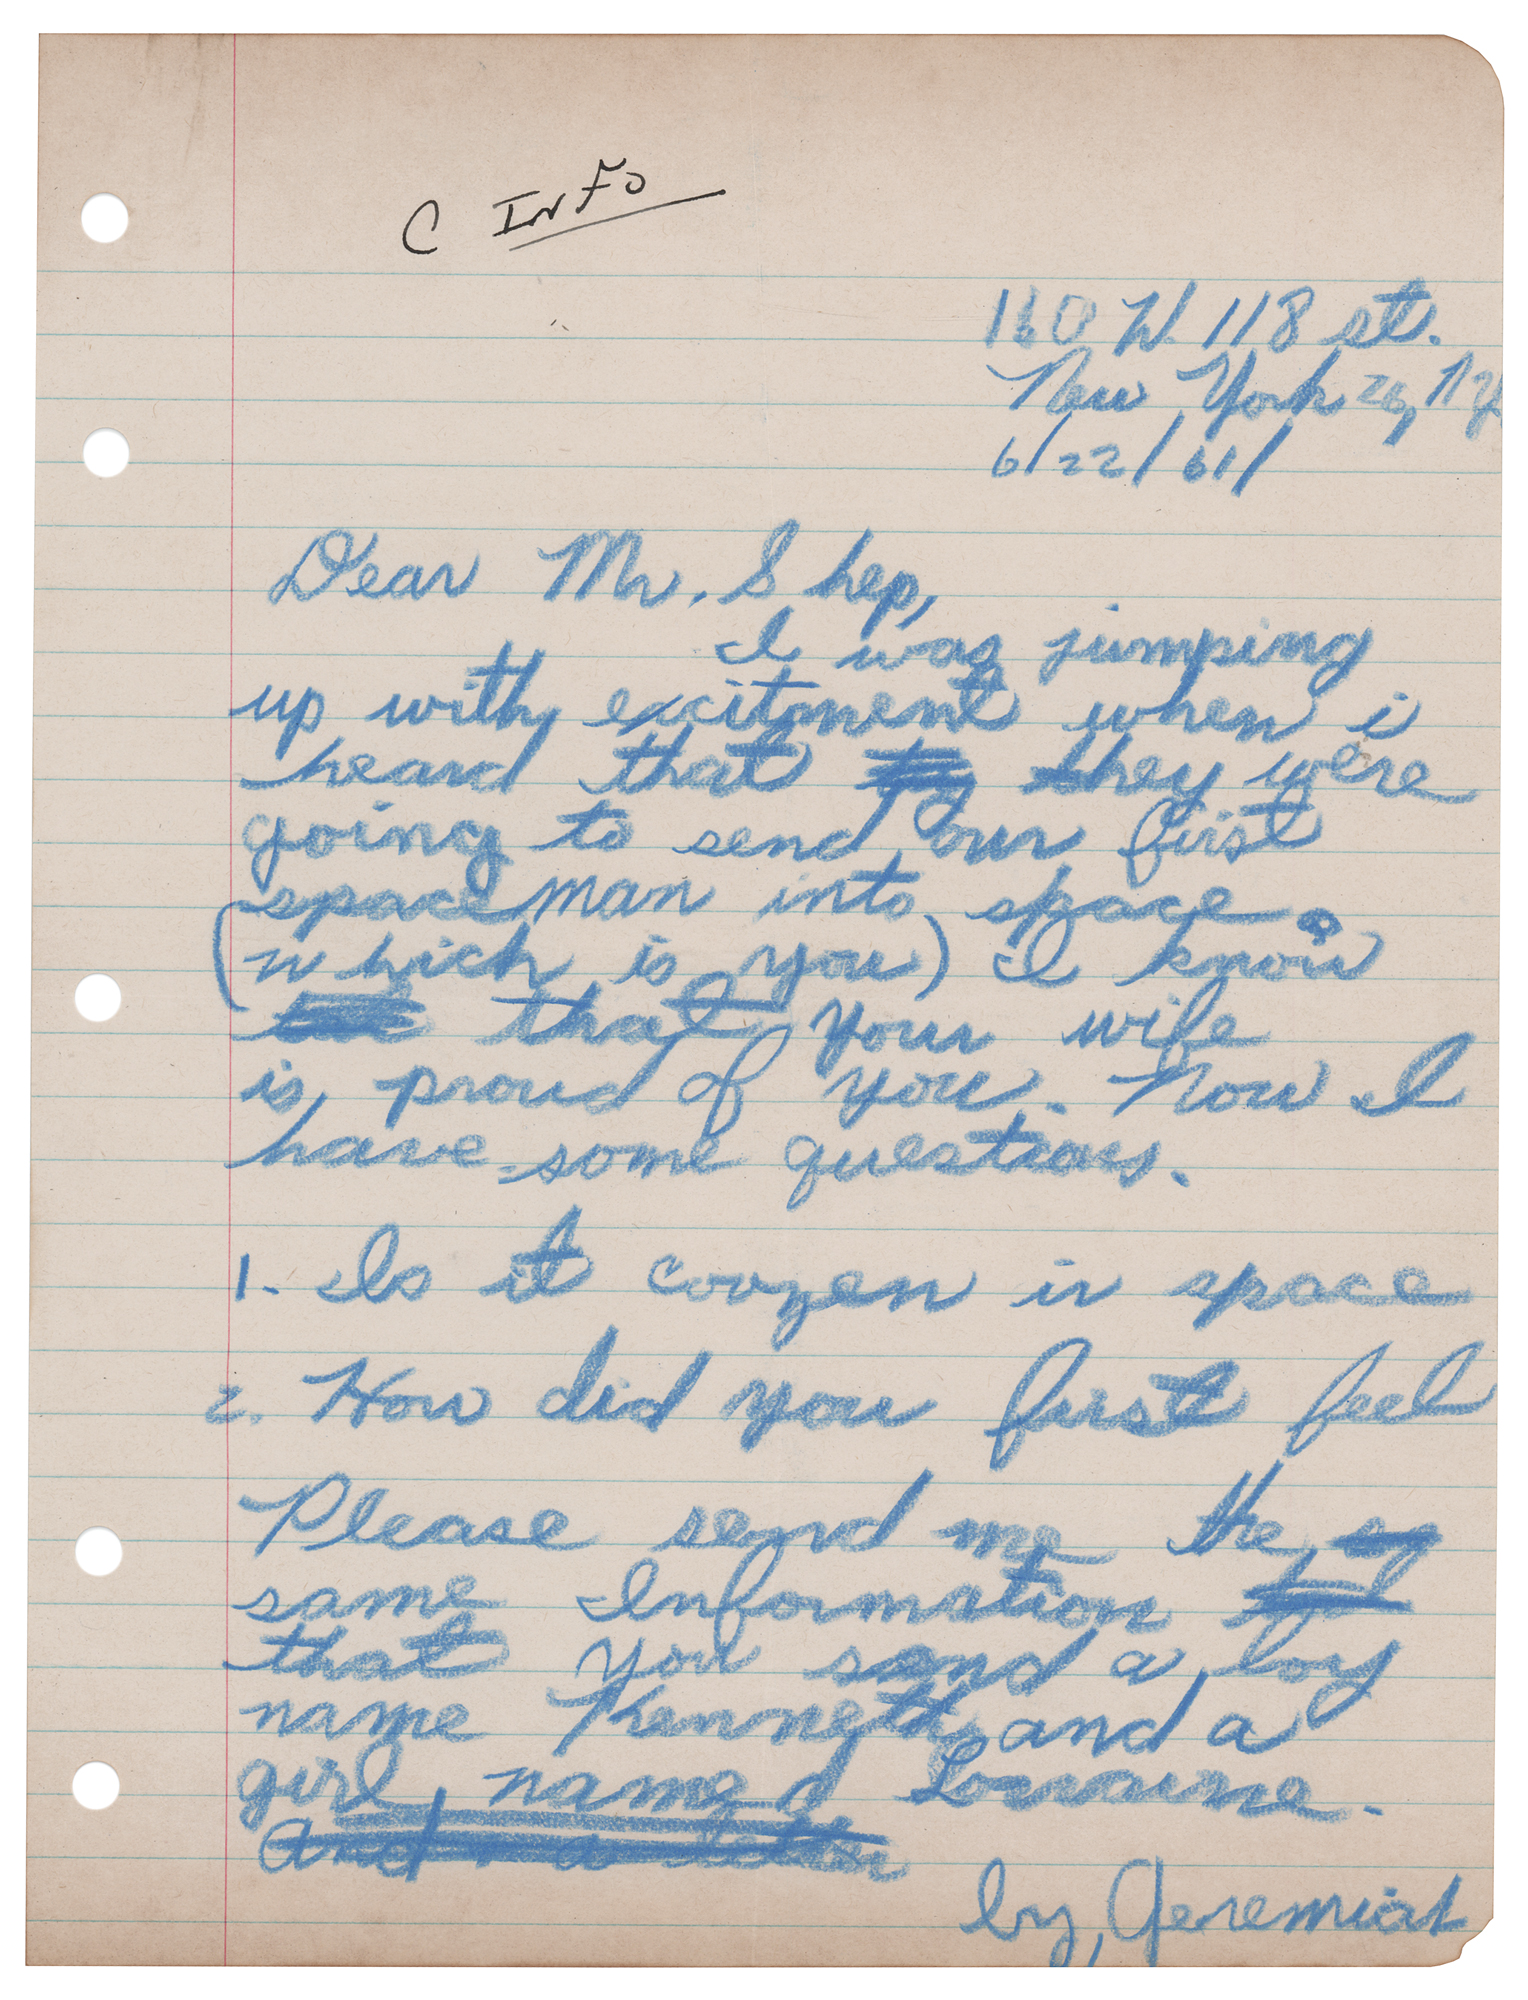 C InFo
160 W. 118 st.
New York 26, NY
6/22/61/
Dear Mr. Shep,
I was jumping
up with excitment when i
heard that they were
going to send our first
space man into space.
(which is you) I know
that your wife
is proud of you. Now I
have some questions.
1. Is it coozen in space
2. How did you first feel
Please send me the
same Information
that you send a boy
name Kenneth and a
girl named Lorraine.
And a letter
by, Jeremiah